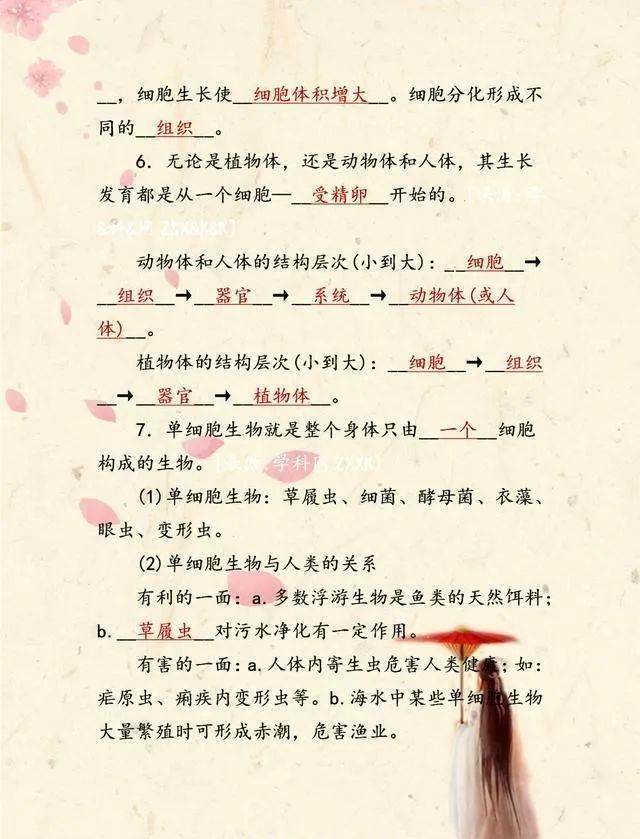 __，细胞生长使__细胞体积增大__。细胞分化形成不
同的__组织__。
6．无论是植物体，还是动物体和人体，其生长
发育都是从一个细胞—__受精卵__开始的。
动物体和人体的结构层次(小到大)：__细胞__→
__组织__→__器官__→__系统__→__动物体(或人
体)__。
植物体的结构层次(小到大)：__细胞__→__组织
__→__器官__→__植物体__。
7．单细胞生物就是整个身体只由__一个__细胞
构成的生物。
(1)单细胞生物：草履虫、细菌、酵母菌、衣藻、
眼虫、变形虫。
(2)单细胞生物与人类的关系
有利的一面：a.多数浮游生物是鱼类的天然饵料；
b.__草履虫__对污水净化有一定作用。
有害的一面：a.人体内寄生虫危害人类健康；如：
疟原虫、痢疾内变形虫等。b.海水中某些单细胞生物
大量繁殖时可形成赤潮，危害渔业。